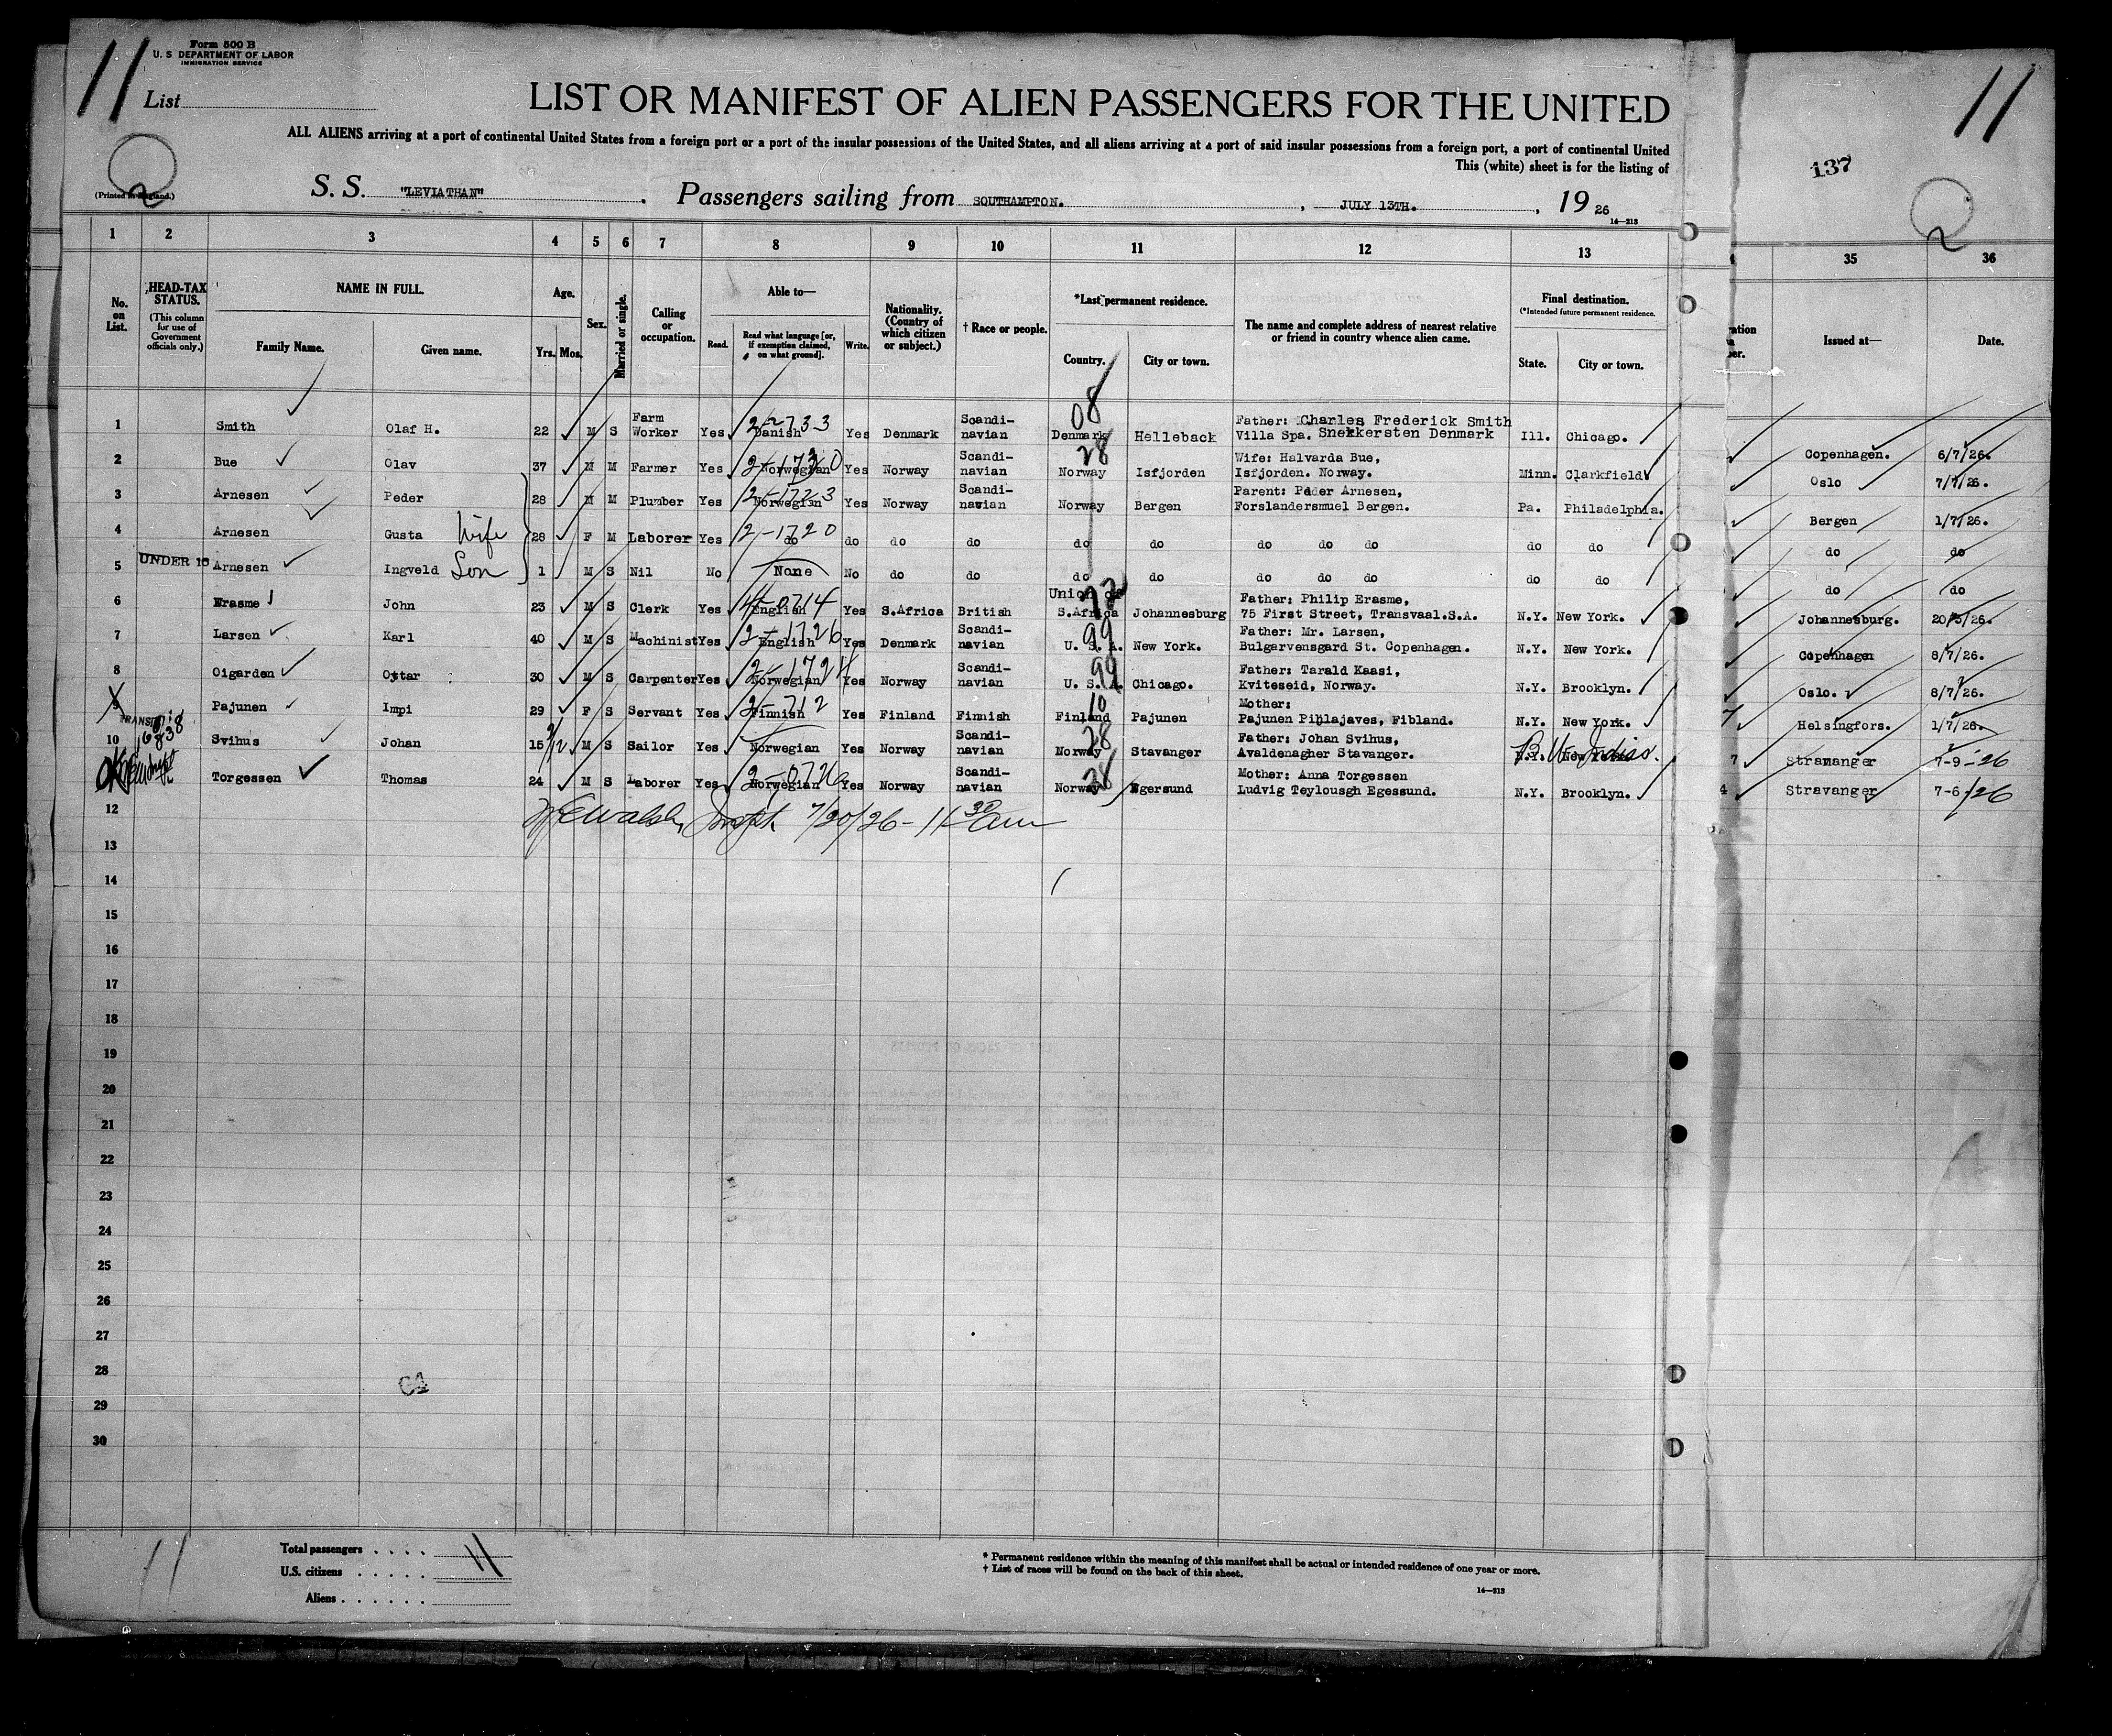 11
Form 500 B
U. S DEPARTMENT OF LABOR
IMMIGRATION SERVICE
List
11
LIST OR MANIFEST OF ALIEN PASSENGERS FOR THE UNITED
ALL ALIENS arriving at a port of continental United States from a foreign port or a port of the insular possessions of the United States, and all aliens arriving at a port of said insular possessions from a foreign port, a port of continental United
This (white) sheet is for the listing of
137
2
(Printed in England.)
S. S. "LEVIATHAN" . Passengers sailing from SOUTHAMPTON. , JULY 13TH. , 19 26
14—213
2
1 2 3 4 5 6 7 8 9 10 11 12 13 35 36
No. on List.
HEAD-TAX STATUS.
(This column for use of Government officials only.)
NAME IN FULL.
Family Name. Given name.
Age.
Yrs. Mos.
Sex.
Married or single.
Calling or occupation.
Able to—
Read. Read what language [or, if exemption claimed, on what ground]. Write.
Nationality. (Country of which citizen or subject.)
† Race or people.
*Last permanent residence.
Country. City or town.
The name and complete address of nearest relative or friend in country whence alien came.
Final destination.
(*Intended future permanent residence.
State. City or town.
Issued at— Date.
1 Smith Olaf H. 22 M S Farm Worker Yes Danish Yes Denmark Scandi-navian 08 Denmark Helleback Father: Charles Frederick Smith Villa Spa. Snekkersten Denmark Ill. Chicago. Copenhagen. 6/7/26.
2 Bue Olav 37 M M Farmer Yes Norwegian Yes Norway Scandi-navian 28 Norway Isfjorden Wife: Halvarda Bue, Isfjorden. Norway. Minn. Clarkfield Oslo 7/7/26.
3 Arnesen Peder 28 M M Plumber Yes 2-1723 Norwegian Yes Norway Scandi-navian Norway Bergen Parent: Peder Arnesen, Forslandersmuel Bergen. Pa. Philadelphia. Bergen 1/7/26.
4 Arnesen Gusta Wife 28 F M Laborer Yes 2-1720 do do do do do do do do do do do do do
5 UNDER 16 Arnesen Ingveld Son 1 M S Nil No None No do do do do do do do do do do do
6 Erasme John 23 M S Clerk Yes 4-0714 English Yes S.Africa British Union of S.Africa Johannesburg Father: Philip Erasme, 75 First Street, Transvaal.S.A. N.Y. New York. Johannesburg. 20/5/26.
7 Larsen Karl 40 M S Machinist Yes 2-1726 English Yes Denmark Scandi-navian 99 U. S. A. New York. Father: Mr. Larsen, Bulgarvensgard St. Copenhagen. N.Y. New York. Copenhagen 8/7/26.
8 Oigarden Ottar 30 M S Carpenter Yes 2-1724 Norwegian Yes Norway Scandi-navian 99 U. S. A. Chicago. Father: Tarald Kaasi, Kviteseid, Norway. N.Y. Brooklyn. Oslo. 8/7/26.
9 Pajunen Impi 29 F S Servant Yes 2-712 Finnish Yes Finland Finnish 10 Finland Pajunen Mother: Pajunen Pihlajaves, Fibland. N.Y. New York. Helsingfors. 1/7/26.
10 TRANSIT Svihus Johan 15 M S Sailor Yes Norwegian Yes Norway Scandi-navian 28 Norway Stavanger Father: Johan Svihus, Avaldenagher Stavanger. N.Y. New York. B. W. Indies. Stravanger 7-9-26
Torgessen Thomas 24 M S Laborer Yes 2-0726 Norwegian Yes Norway Scandi-navian 28 Norway Egersund Mother: Anna Torgessen Ludvig Teylousgh Egessund. N.Y. Brooklyn. Stravanger 7-6-/26
12 Walsh, 7/20/26 - 11 30 am
13
14
15
16
17
18
19
20
21
22
23
24
25
26
27
28
29
30
Total passengers . . . . 11
U.S. citizens . . . . .
Aliens . . . . . .
* Permanent residence within the meaning of this manifest shall be actual or intended residence of one year or more.
† List of races will be found on the back of this sheet.
14—213